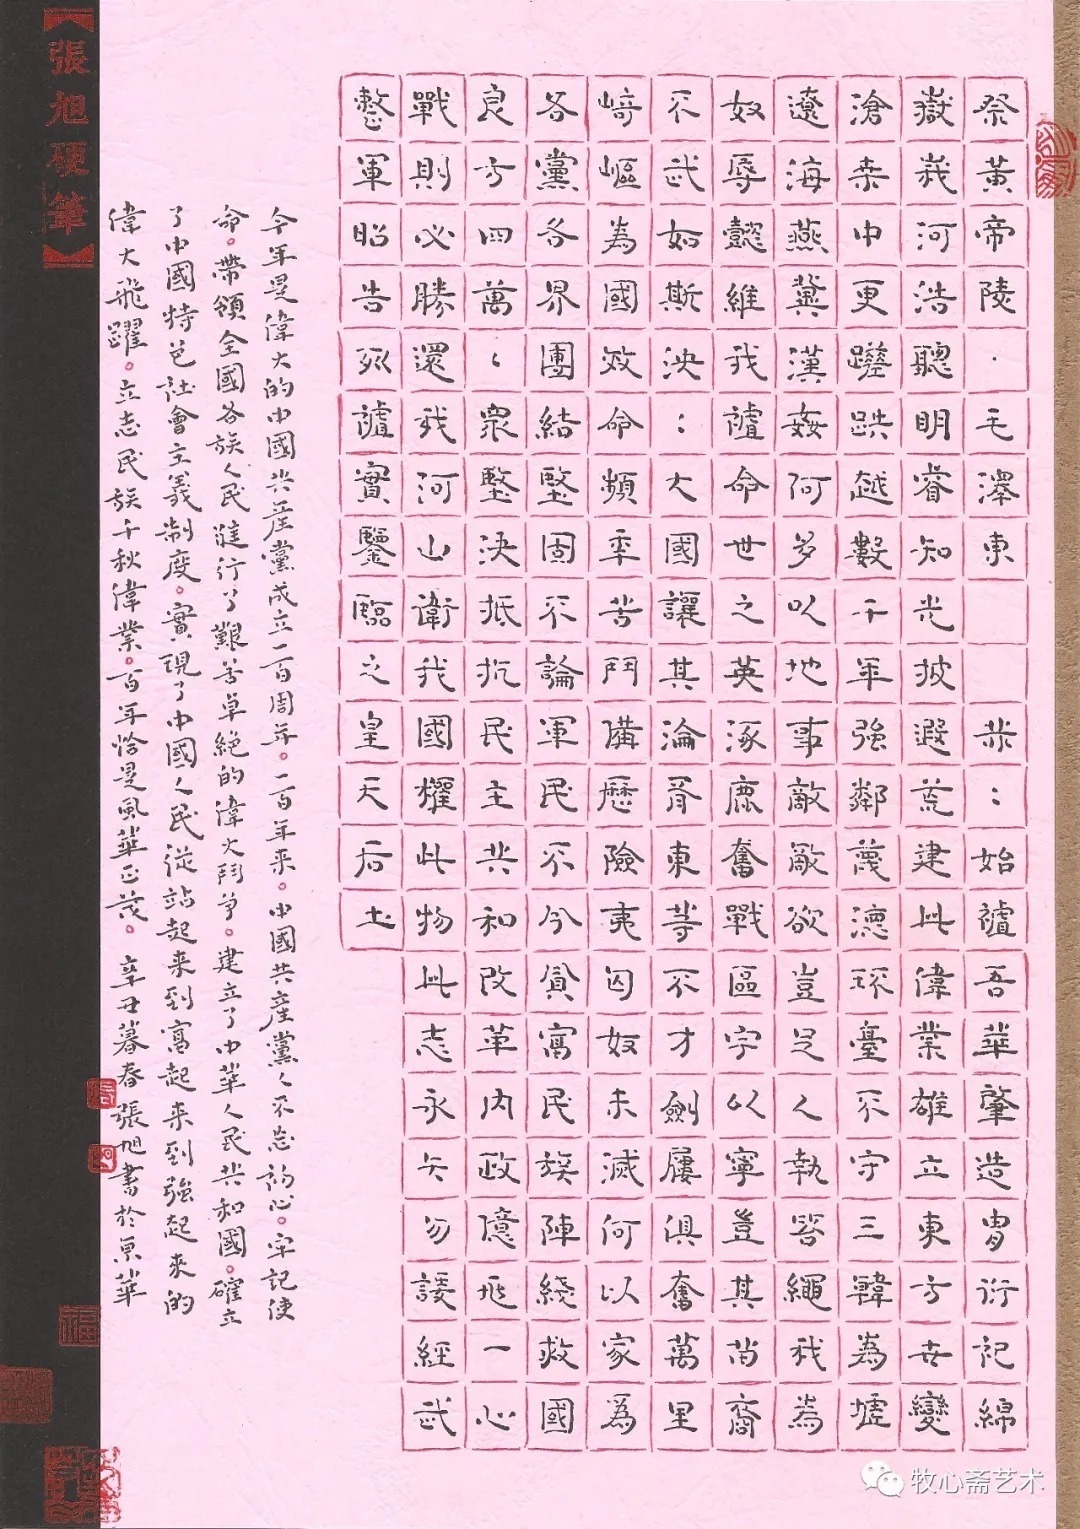 祭黃帝陵·毛澤東　赫：始祖吾華肇造胄衍祀綿
嶽峩河浩聰明睿知光披遐荒建此偉業雄立東方世變
滄桑中更蹉跌越數千年強鄰蔑德琉臺不守三韓為墟
遼海燕冀漢姦何多以地事敵敵欲豈足人執笞繩我為
奴辱懿維我祖命世之英涿鹿奮戰區宇以寧豈其苗裔
不武如斯泱：大國讓其淪胥東等不才劍屨俱奮萬里
崎嶇為國效命頻年苦鬥備歷險夷匈奴未滅何以家為
各黨各界團結堅固不論軍民不分貧富民族陣綫救國
良方四萬、衆堅決抵抗民主共和改革內政億兆一心
戰則必勝還我河山衛我國權此物此志永矢勿諼經武
整軍昭告列祖實鑒臨之皇天后土
今年是偉大的中國共產黨成立一百周年。一百年来。中國共產黨人不忘初心。牢記使
命。帶領全國各族人民進行了艱苦卓絕的偉大鬥爭。建立了中華人民共和國。確立
了中國特色社會主義制度。實現了中國人民從站起来到富起来到強起来的
偉大飛躍。立志民族千秋偉業。百年恰是風華正茂。辛丑暮春張旭書於京華
【張旭硬筆】
牧心斋艺术